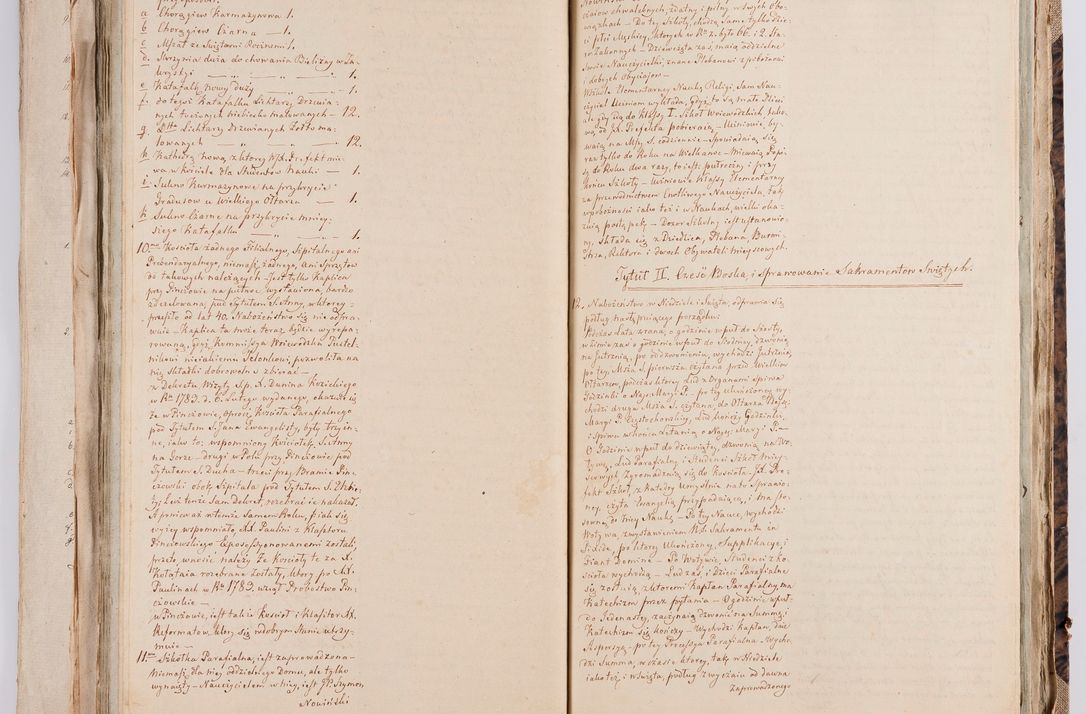 a Chorągiew Karmazynowa 1.
b Chorągiew Czarna — 1.
c Mszał ze Swiętami Poczesnemi 1.
d. Skrzynia duża do chowania Bielizny w Za-
krystyi — „ — „ — „ — 1.
e Katafalk nowy duży — „ — 1.
f. do tegoż Katafalku Lichtarzy Drzewia-
nych toczonych niebiesko malowanych — 12.
g Dtto Lichtarzy Drzewianych żołto ma-
lowanych — „ — „ — 12.
h Kathedra nowa, z ktorey Xdz. Prefekt mie-
wa w kościele dla Studentow Nauki — 1.
i Sukno Karmazynowe na przykrycie
Gradusow u Wielkiego Ołtarza — 1.
k Sukno Czarne na przykrycie mniey-
szego Katafalku — „ — 1.
10. Kościoła żadnego Filialnego, Szpitalnego ani
Prebendaryalnego, niemasz żadnego, ani Sprzętow
do takowych należących. Jest tylko Kaplica
przy Pinczowie na puśtce wystawiona, bardzo
zdezelowana, pod Tytułem S. Anny, w ktorey
przeszło od lat 40. Nabożeństwo się nie odpra-
wuie — Kaplica ta może teraz będzie wyrepa-
rowaną, gdyż Kommissya Woiewodzka Pustel-
nikowi nieiakiemu pozwoliła na
nię składki dobrowolne zbierać —
z Dekretu Wizyty Sp. X. Dunina Kozickiego
w Rku 1783. d. 6. Lutego wydanego, okazuie się
że w Pinczowie, oprocz Kościoła Parafialnego
pod Tytułem S. Jana Ewangelisty, były trzy in-
ne, iako to: wspomniony Kościołek S. Anny
na Gorze — drugi w Polu przy Pinczowie pod
Tytułem S. Ducha — trzeci przy Bramie Pin-
czowskiey obok Szpitala pod Tytułem S.
tyż lecz tenże Sam Dekret, rozebrać ie nakazał.
A ponieważ w tymże Samem Roku, iak się
wyżey wspomniało, XX. Paulini z Klasztoru
Pinczowskiego Exposessyonowanemi zostali,
przeto, wnosić należy że Kościoły te za X.
Kołłątaia rozebrane zostały, ktory po XX.
Paulinach w Rku 1783. wziął Probostwo Pin-
czowskie —
w Pinczowie, iest także Kościoł i Klasztor XX.
Reformatow, ktory się w dobrym Stanie utrzy-
muie —
11. Szkołka Parafialna, iest zaprowadzona —
niemasz dla niey oddzielnego Domu, ale tylko
wynaięty — Nauczycielem w niey, iest JP. Szymon
Nowiński
czaiow chwalebnych, zdatny i pilny w swych obo-
wiązkach — Do tey Szkoły, chodzą Same tylko Dzie-
ci płci Męskiey, ktorych w Rku z. było 66. i 2. Sta-
rozakonnych — Dziewczęta zaś, maią oddzielne
Swoie Nauczycielki, znane Plebanowi z pobożności
i dobrych Obyczaiow —
W Szkole Elementarney Naukę Religii, Sam Nau-
czyciel Uczniom wykłada, Gdyż, co Są małe Dzieci
ale gdy idą do klassy I. Szkoł Woiewodzkich, Nau-
kę od JX. Prefekta pobieraią — Uczniowie, by-
waią na Mszy S. codziennie — Spowiadaią się
raz tylko do Roku na Wielkanoc — Miewaią Popi-
sy do Roku dwa razy, to iest: połroczny i przy
końcu Szkoły — Uczniowie Klassy Elementarney
za przewodnictwem Cnotliwego Nauczyciela, tak
w pobożności iako też i w Naukach, wielki oka-
zuią postępek — Dozor Szkolny iest ustanowio-
ny, Składa się z Dziedzica, Plebana, Burmi-
strza, Rektora i dwoch Obywateli mieyscowych.
Tytuł II. Cześć Boska, i Sprawowanie Sakramentow Swiętych.
12. Nabożeństwo w Niedziele i Swięta, odprawia się
podług następuiącego porządku:
Podczas Lata zrana, o godzinie wpuł do Szostey,
w Zimie zaś o godzinie wpuł do Siodmey, dzwonią
na Jutrznią, po oddzwonieniu, wychodzi Jutrznia,
po tey, Msza S. pierwsza czytana przed Wielkim
Ołtarzem, podczas ktorey Lud z Organami Spiewa
Godzinki o Nayś. Maryi P. — po tey ukończoney wy-
chodzi druga Msza S. czytana do Ołtarza Nayś.
Maryi P. Częstochowskiey, Lud kończy Godzinki,
i Spiewa w końcu Litanią o Nayś. Maryi P. —
O Godzinie wpuł do dziewiątey, dzwonią na Wo-
tywę, Lud Parafialny i Studenci Szkoł miey-
scowych Zgromadzaią się do Kościoła — JX. Pre-
fekt Szkoł, z Katedry Umyślnie na to Sprawio-
ney, czyta Ewangelią przypadaiącą, i ma sto-
sowną do niey Naukę — Po tey Nauce, wychodzi
Wotywa, z wystawieniem N. S. Sakramentu in
Pixide, po ktorey Ukończoney, Supplikacye, i
Fiant Domine — Po Wotywie, Studenci z ko-
ścioła wychodzą — Lud zaś, i Dzieci Parafialne
się zostaią, z ktoremi Kapłan Parafialny ma
Katechizm przez pytania — O godzinie wpuł
do Jedenastey, zaczynaią dzwonić na Summę i
Katechizm się kończy — Wychodzi Kapłan, daie
Aspersyą — po tey Processya Parafialna — Wycho-
dzi Summa, w czasie ktorey, tak w Niedziele
iako też i w święta, podług zwyczaiu od dawna
Zaprowadzonego